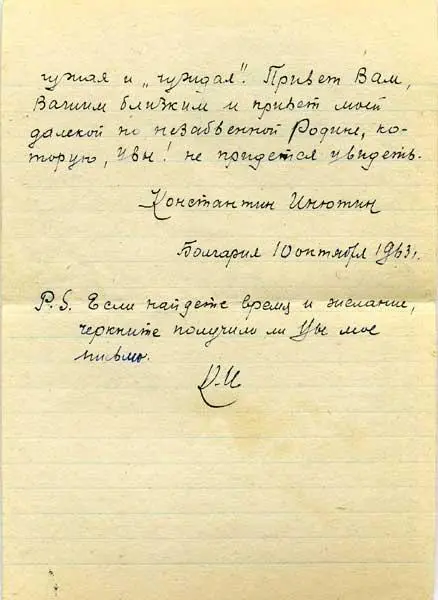 чужая и „чуждая“. Привет Вам,
Вашим близким и привет моей
далекой но незабвенной Родине, ко-
торую, увы! не придется увидеть.
Константин Инютин
Болгария 10 октября 1963 г.
P.S. Если найдете время и желание,
черкните получили ли Вы мое
письмо.
К.И